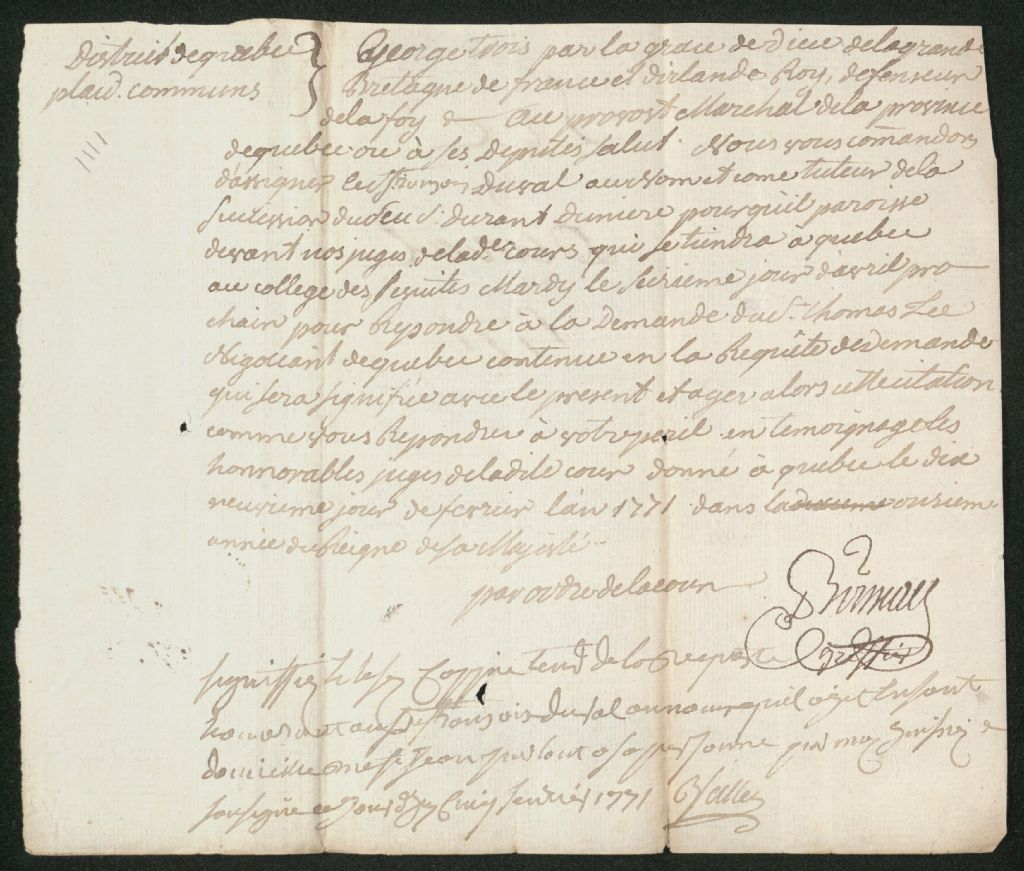 District de quebec
plaid. communs
George trois par la grace de dieu de la grande
Bretagne de france et dirlande Roy, defenseur
de la foy &c Au provost Marechal de la province
de quebec ou à ses Deputés salut. Nous vous comandons
d'assigner le sr. françois Duval au nom et come tuteur de la
succession du feu s. durant Duniere pour qu'il paroisse
devant nos juges de lad. cours qui se tiendra à quebec
au college des Jesuites Mardy le seisieme jour d'avril pro
chain pour Repondre à la Demande du Sr. thomas Lee
Negociant de quebec contenue en la Requête de Demande
qui sera signifiée avec le present et ayez alors cette citation
comme vous Repondrez à votre peril en temoignage les
honnorables juges de la dite cour donné à quebec le dix
neuvieme jour de fevrier l'an 1771 dans la dixieme onzieme
année du Reigne de sa Majesté
par ordre de la cour
greffier
signiffiez le
françois duval au nom quil agit
domicille parlant a sa personne par moy huissiez
sousigne ce jour fevries 1771